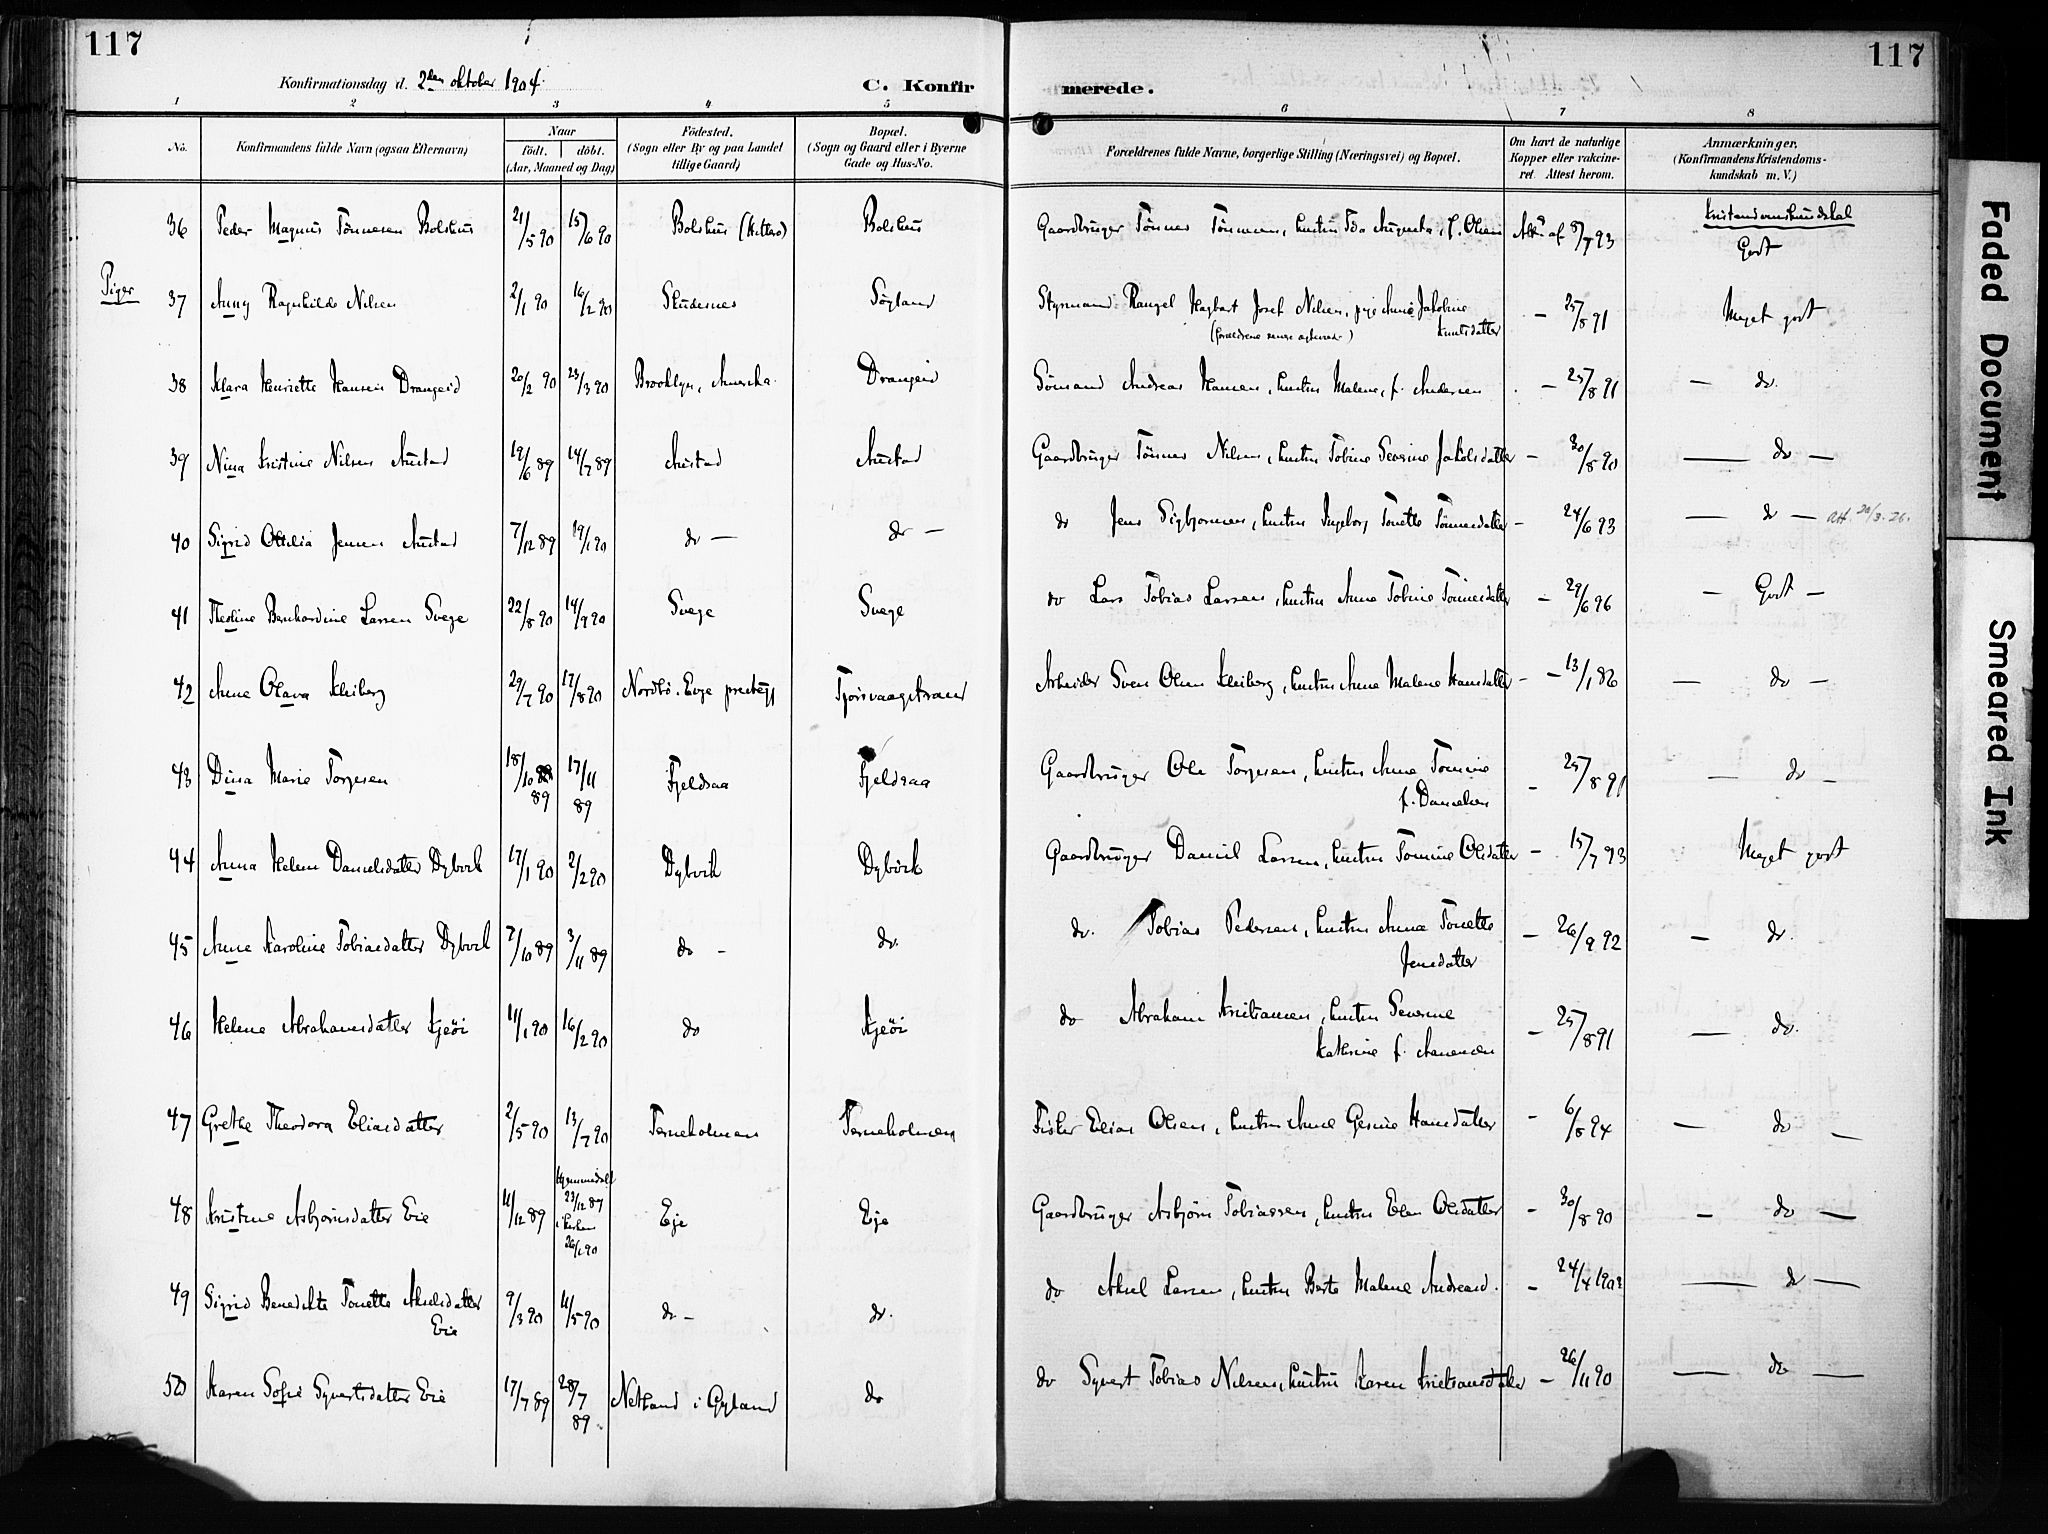 117
117
Konfirmationsdag d. 2den oktober 1904.
C. Konfirmerede.
1 2 3 4 5 6 7 8
No.
Konfirmandens fulde Navn (ogsaa Efternavn)
Naar
födt. döbt.
(Aar, Maaned og Dag)
Födested.
(Sogn eller By og paa Landet
tillige Gaard)
Bopæl.
(Sogn og Gaard eller i Byerne
Gade og Hus-No.
Forældrenes fulde Navne, borgerlige Stilling (Næringsvei) og Bopæl.
Om havt de naturlige
Kopper eller vakcine-
ret. Attest herom.
Anmærkninger.
(Konfirmandens Kristendoms-
kundskab m. V.)
Kristendomskundskab
36 Peder Magnus Tönnesen Bolshus 21/5 90 15/6 90 Bolshus (Hitterö) Bolshus Gaardbruger Tönnes Tönnesen, hustru Ida Augusta, f. Olsen Att. af 8/7 93 Godt
Piger
37 Anny Ragnhilde Nilsen 2/1 90 16/2 90 Skudesnes Sögland Styrmand Rangel Hagbart Josef Nilsen, pige Anne Jakobine Knutsdatter — 25/8 91 Meget godt
38 Klara Henriette Hansen Drangeid 20/2 90 23/3 90 Brooklyn, Amerika. Drangeid Sömand Andreas Hansen, hustru Malene, f. Andersen — 25/8 91 — do.
39 Nina Kristine Nilsen Austad 19/6 89 14/7 89 Austad Austad Gaardbruger Tönnes Nilsen, hustru Tobine Severine Jakobsdatter — 30/8 90 — do —
40 Sigrid Otilia Jensen Austad 7/12 89 19/1 90 do — do — do Jens Sigbjörnsen, hustru Ingeborg Tonette Tönnesdatter — 24/6 93 — do — att. 20/3.26.
41 Theoline Bernhardine Larsen Svege 22/8 90 14/9 90 Svege Svege do Lars Tobias Larsen, hustru Anna Tobine Tönnesdatter — 29/6 96 — Godt —
42 Anne Olava Kleiberg 29/7 90 17/8 90 Nordbö. Evje prestegj Tjörsvaagstrand Arbeider Sven Olsen Kleiberg, hustru Anna Malene Hansdatter — 13/1 82 — do —
43 Dina Marie Torjesen 18/10 89 17/11 89 Fjeldsaa Fjeldsaa Gaardbruger Ole Torjesen, hustru Anne Tomine f. Danielsen — 25/8 91 — do —
44 Anna Helene Danielsdatter Dybvik 17/1 90 2/2 90 Dybvik Dybvik Gaardbruger Daniel Larsen, hustru Tomine Olsdatter — 15/7 93 Meget godt
45 Anne Karoline Tobiasdatter Dybvik 7/10 89 3/11 89 do — do. do. Tobias Pedersen, hustru Anna Tonette Jensdatter — 26/9 92 — do.
46 Helene Abrahamsdatter Kjeöi 11/1 90 16/2 90 do Kjeöi do Abraham Kristiansen, hustru Severine Kathrine f. Aanensen — 25/8 91 — do.
47 Grethe Theodora Eliasdatter 2/5 90 13/7 90 Terneholmen Terneholmen Fisker Elias Olsen, hustru Anne Gesine Hansdatter — 6/8 94 — do —
48 Kristine Asbjörnsdatter Eie 11/12 89 Hjemmedöbt 23/12 89 i kirken 26/1 90 Eje Eje Gaardbruger Asbjörn Tobiassen, hustru Elen Olsdatter — 30/8 90 — do —
49 Sigrid Benedikte Tonette Akselsdatter Eie 9/3 90 11/5 90 do — do. do Aksel Larsen, hustru Berte Malene Andreasd. — 24/4 1902 — do —
50 Karen Sofie Syvertsdatter Eie 17/7 89 28/7 89. Netland i Gyland do do Syvert Tobias Nilsen, hustru Karen Kristiansdatter — 26/11 90 — do —
Faded Document
Smeared Ink